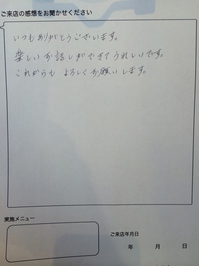 ご来店の感想をお聞かせください
いつもありがとうございます。
楽しいお話しができてうれしいです。
これからも よろしくお願いします。
実施メニュー
ご来店年月日
年 月 日